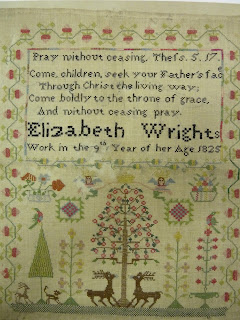 Pray without ceasing. Thess. 5. 17.
Come, children, seek your Father's face
Through Christ the living way;
Come boldly to the throne of grace,
And without ceasing pray.
Elizabeth Wrights
Work in the 9th Year of her Age 1825